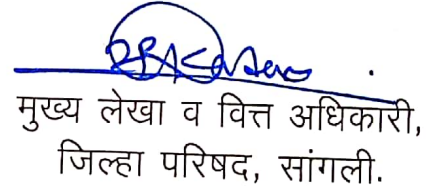 मुख्य लेखा व वित्त अधिकारी,
जिल्हा परिषद, सांगली.